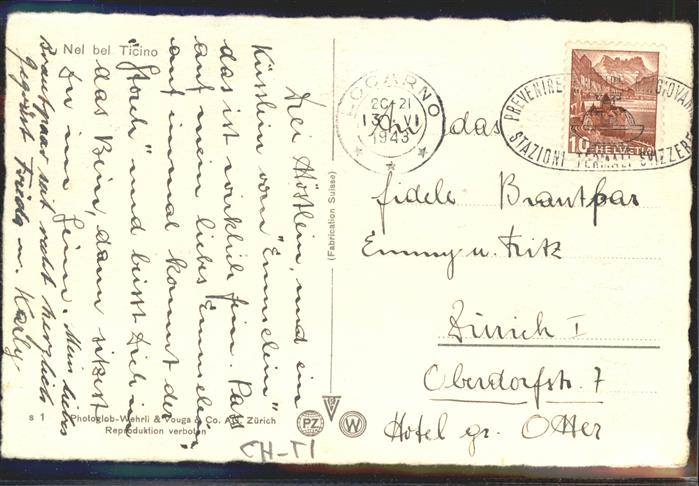 Nel bel Ticino
Drei Höstlein, und ein
Küsslein vom "Emmelein"
das ist wirklich fein. Pass
auf mein liebs Emmelein
auf einmal kommt der
"Storch" und beisst Dich in
das Bein, dann sitzest
Du im Heim. Mein liebes
Brautpaar seit recht herzlich
gegrüsst Frieda u. Karly
s 1
Photoglob-Wehrli & Vouga & Co. A.G. Zürich
Reproduktion verboten
(Fabrication Suisse)
PZ
V
W
CH-TI
LOCARNO
20-21
13 VI
1943
PREVENIRE GIOVA
STAZIONI TERMALI SVIZZERE
10 HELVETIA
An das
fidele Brautpar
Emmy u. Fritz
Zürich I
Oberdorfstr. 7
Hotel gr. Otter